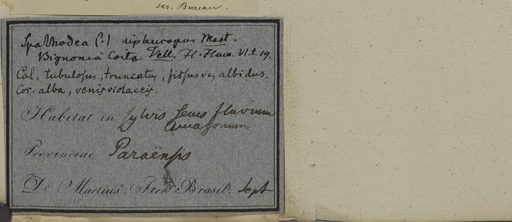 ser. Bureau.
Spathodea (?) xipteropus Mart.
Bignonia Coita Vell. Fl. Flum. VI. t. 19.
Cal. tubulosus, truncatus, fissusve, albidus.
Cor. alba, venis violaceis.
Habitat in sylvis secus fluvium
Amazonum
Provinciae Paraënsis
Dr. Martius: Iter Brasil. Sept